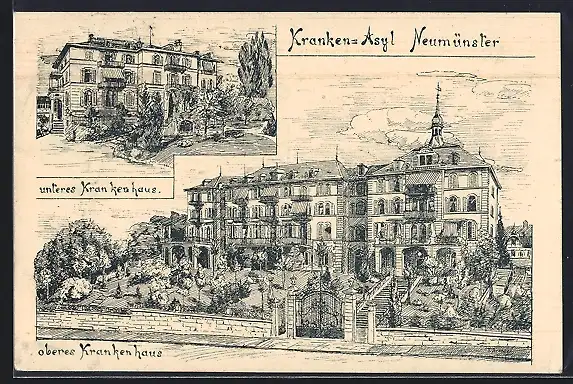 Kranken=Asyl Neumünster
unteres Krankenhaus.
oberes Krankenhaus